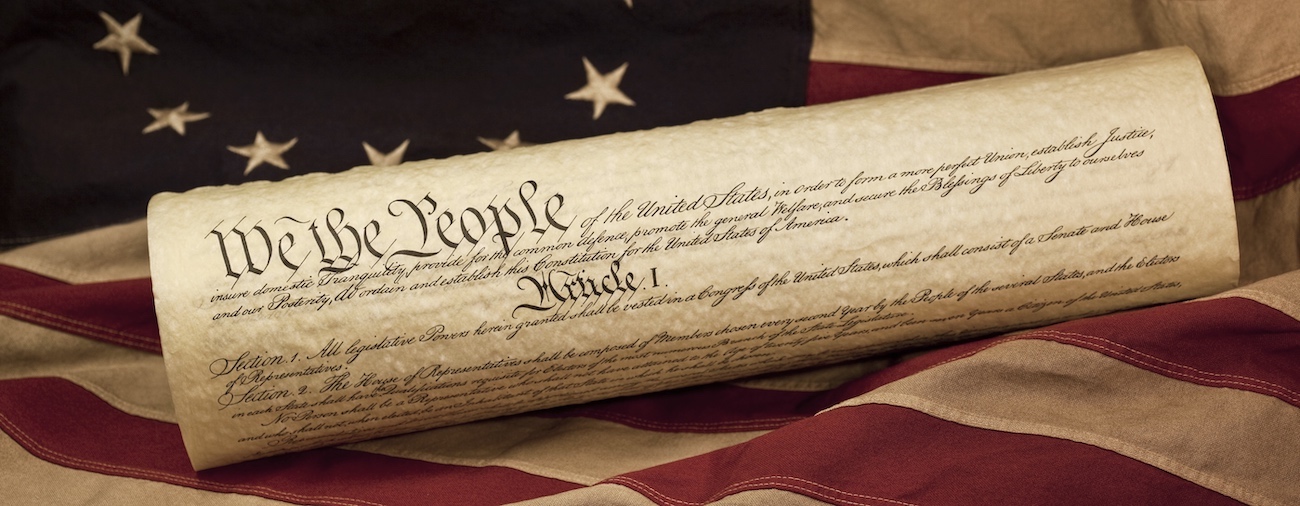 We the People of the United States, in order to form a more perfect Union, establish Justice,
insure domestic Tranquility, provide for the common defence, promote the general Welfare, and secure the Blessings of Liberty to ourselves
and our Posterity, do ordain and establish this Constitution for the United States of America.
Article. I.
Section 1. All legislative Powers herein granted shall be vested in a Congress of the United States, which shall consist of a Senate and House
of Representatives.
Section 2. The House of Representatives shall be composed of Members chosen every second Year by the People of the several States, and the Electors
in each State shall have Qualifications requisite for Electors of the most numerous Branch of the State Legislature.
No Person shall be a Representative who shall not have attained to the Age of twenty five Years, and been seven Years a Citizen of the United States,
and who shall not, when elected, be an Inhabitant of that State in